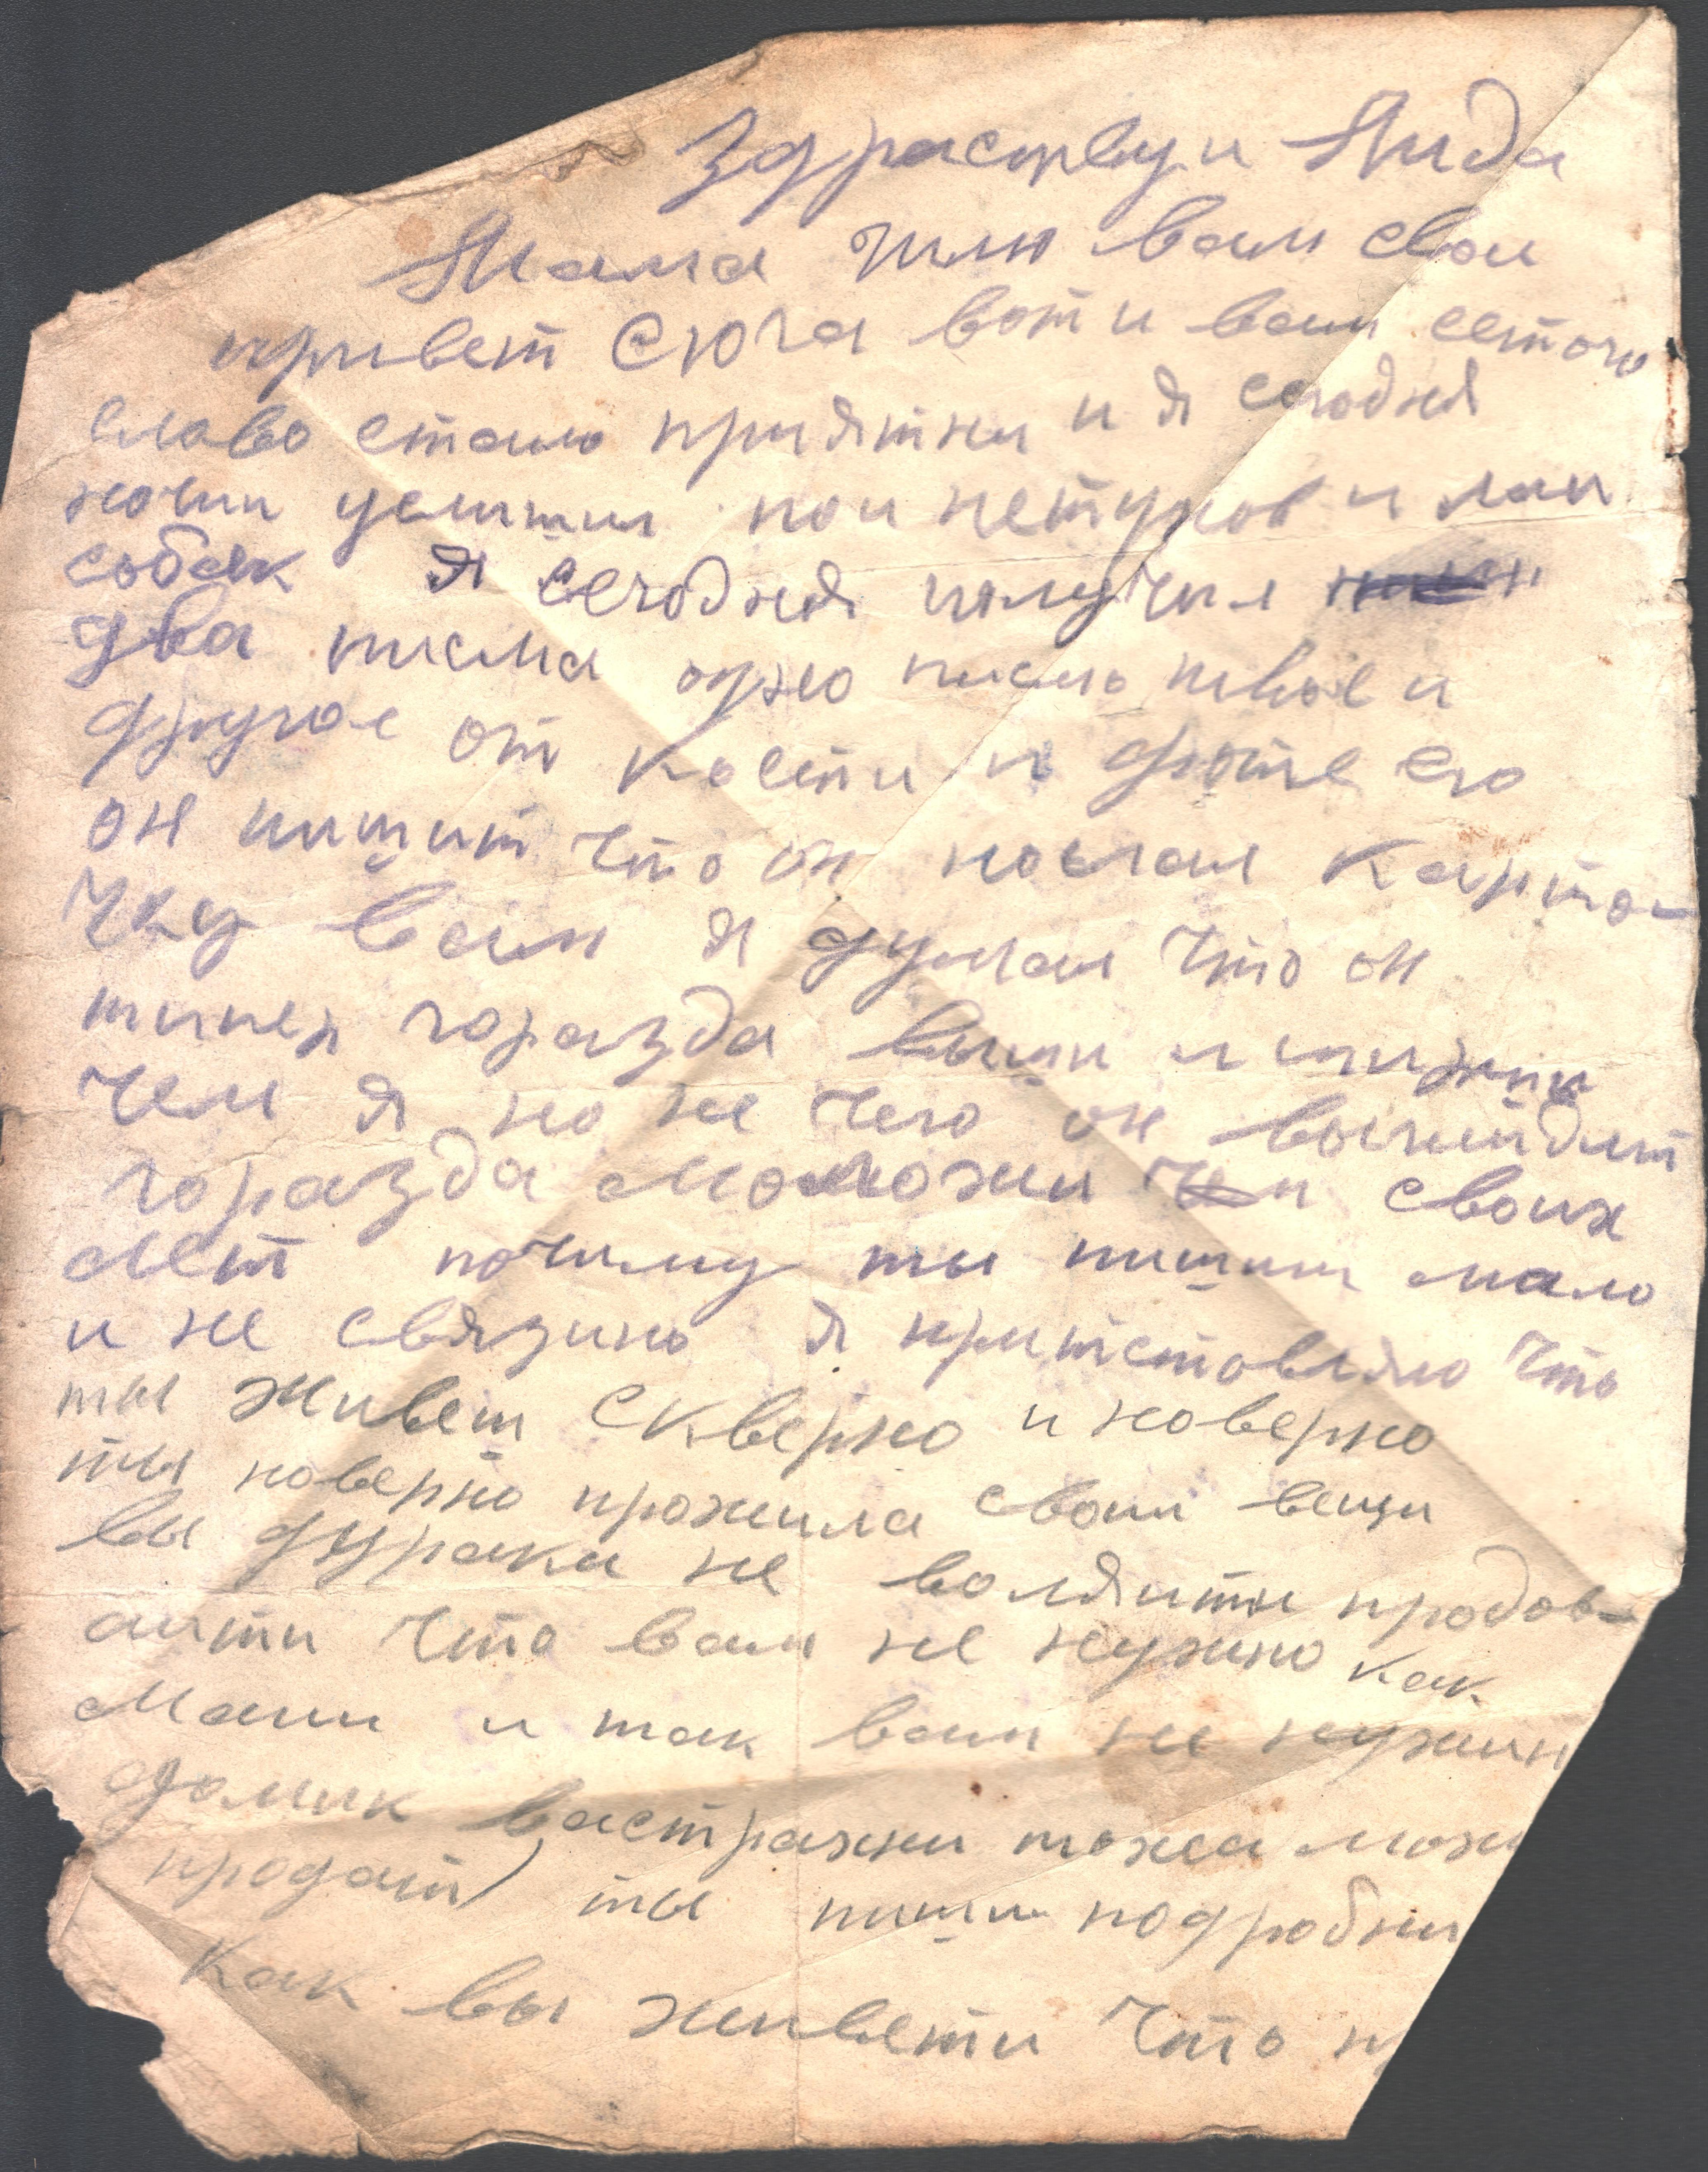 Здраствуи Лида
Мама шлю вам свои
привет вот и вам
славо стало приятни и я сегодня
ночи услишил пои петухов и лаи
собак я сегодня получил
два писма одно писмо твое и
другое от Кости и фоте его
он пишит что он послал карто-
чку вам я думаю что он
типер горазда выши и
чем я но не чего он выгледит
горазда моложи своих
лет почиму ты пишиш мало
и не связино я притстовляю что
ты живеш скверно и новерно
ты новерно прожила свои вещи
вы дураки не воляити продов-
аити что вам не нужно как
Маши и так вам не нужин
домик вастражни тожеа
продат) ты пиши подробни
как вы живети что